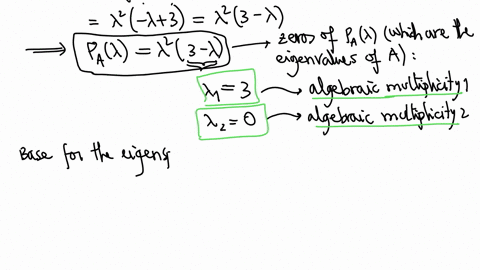 = λ²(-λ+3) = λ²(3-λ)
⟹ P_A(λ) = λ²(3-λ) → zeros of P_A(λ) (which are the
eigenvalues of A):
λ₁ = 3 → algebraic multiplicity 1
λ₂ = 0 → algebraic multiplicity 2
Base for the eigensp